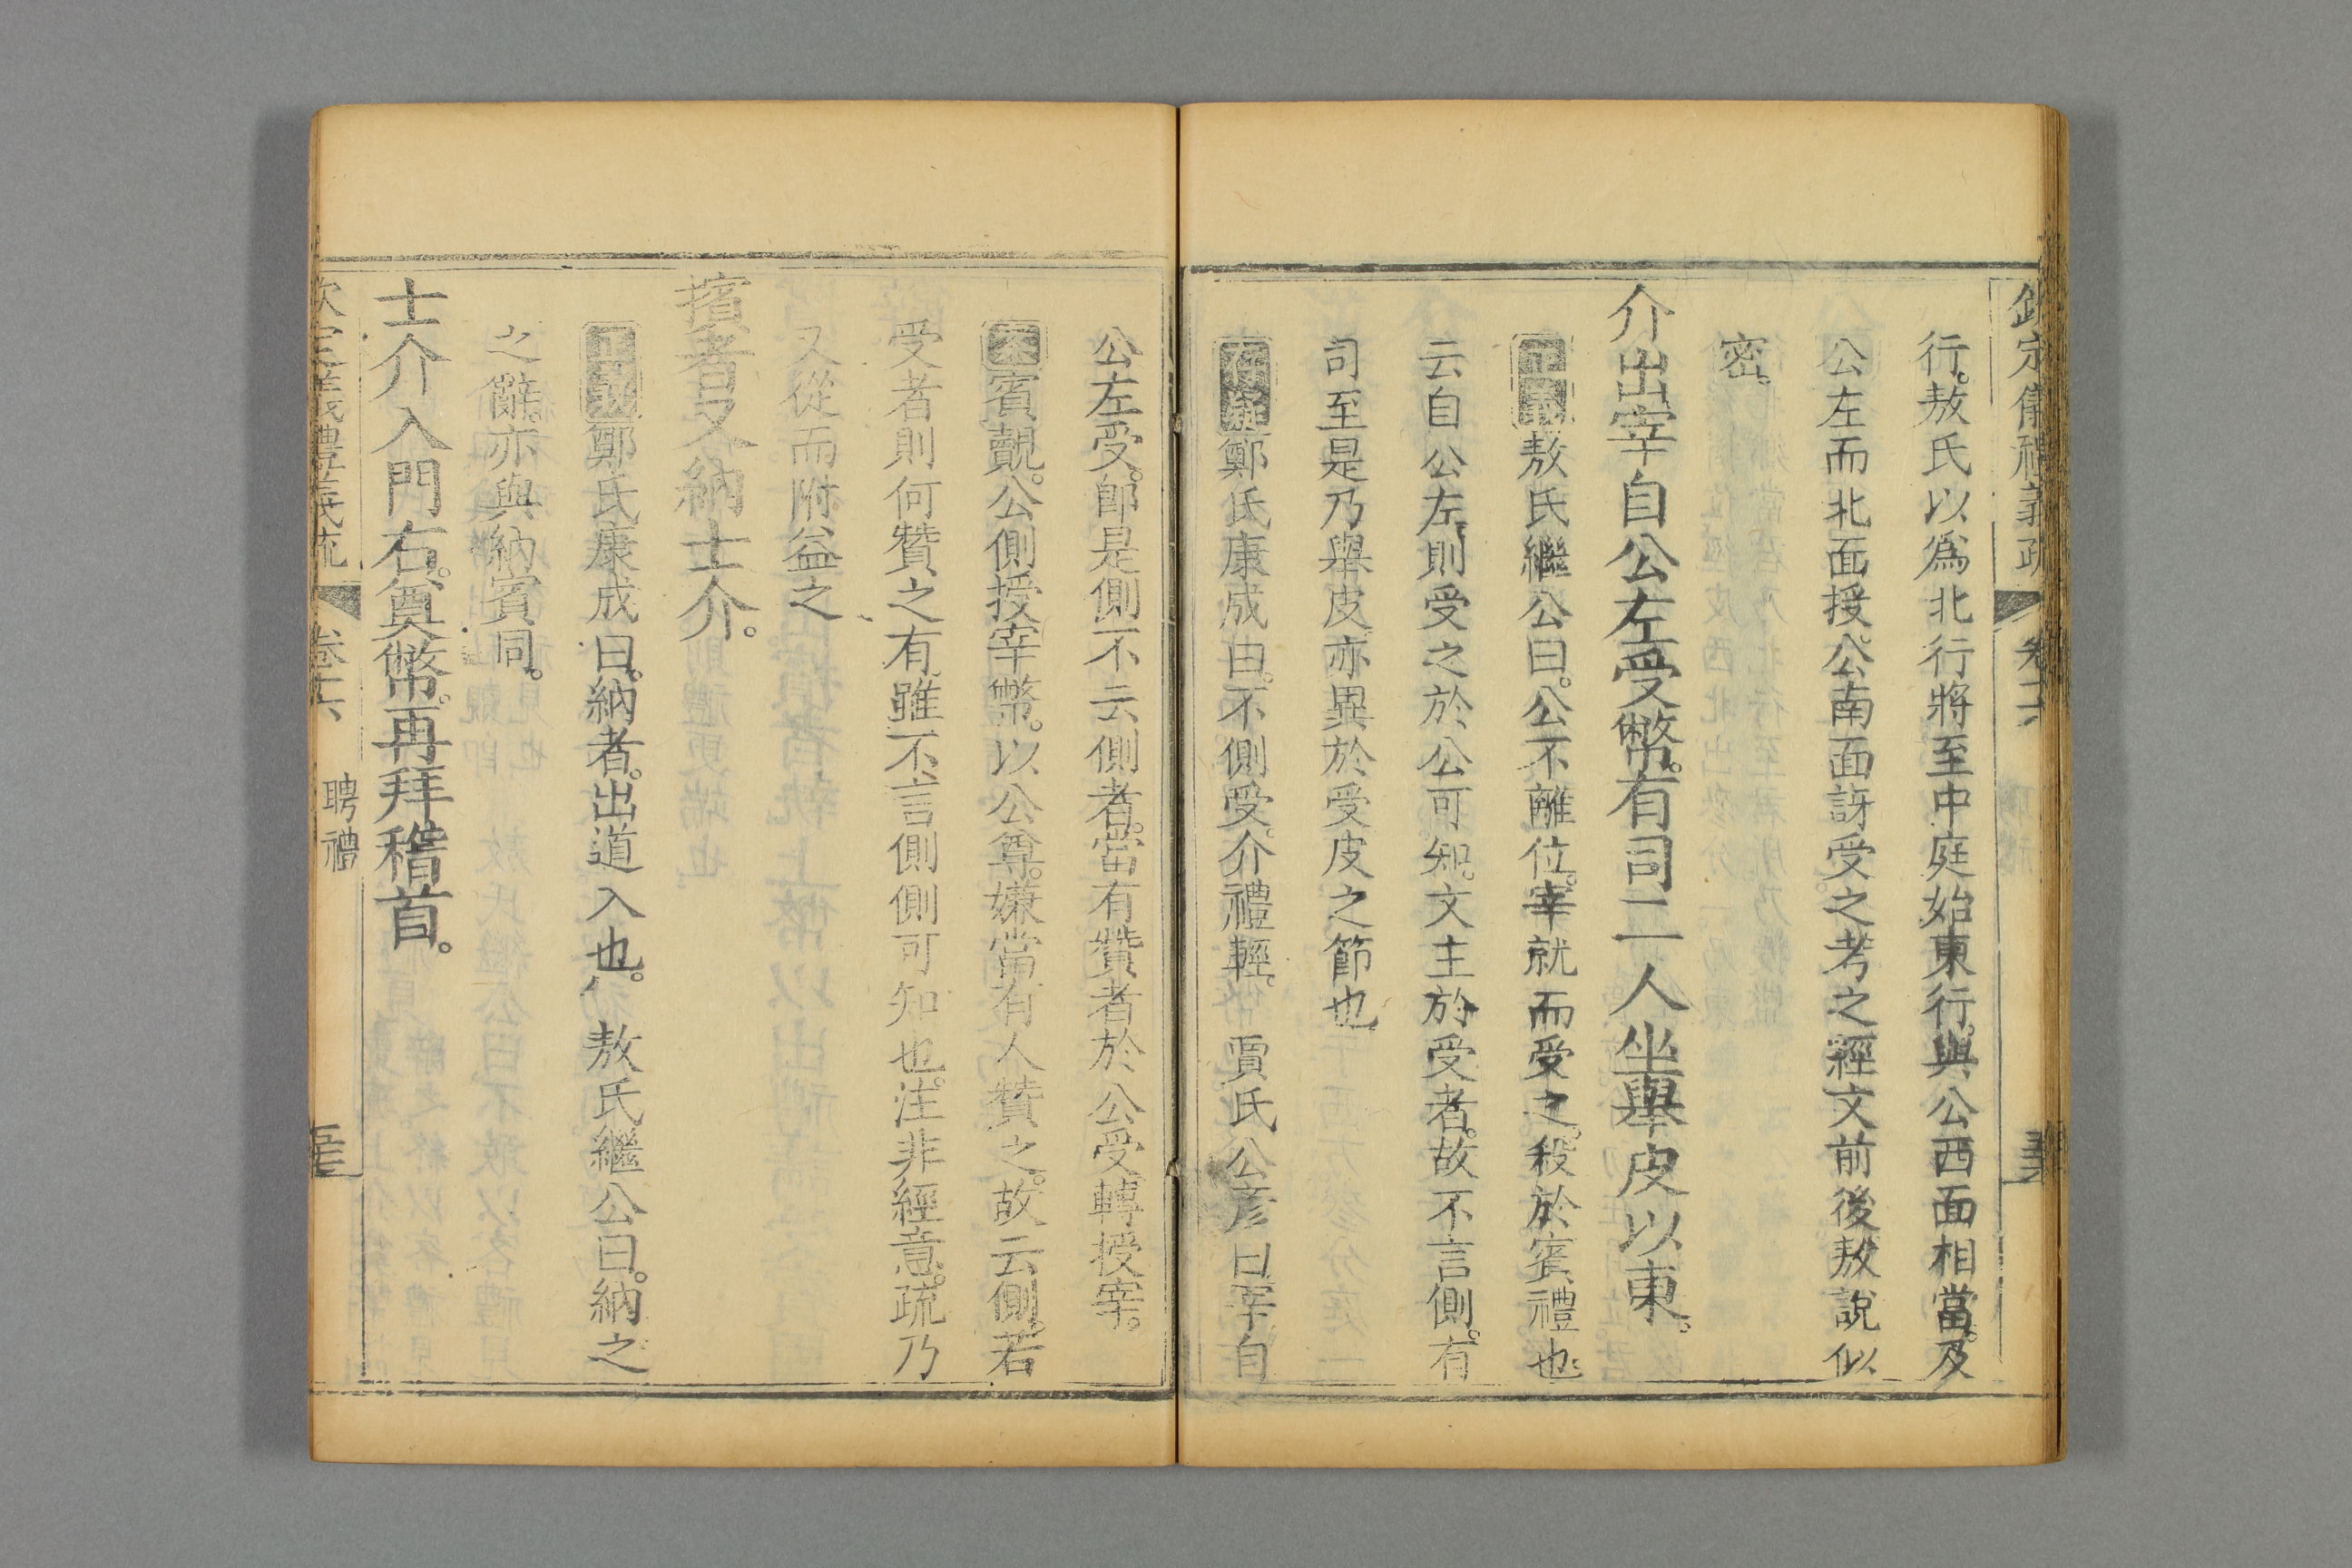 欽定儀禮義疏 卷十六
行。敖氏以爲北行將至中庭始東行。與公西面相當。及
公左而北面授。公南面訝受之考之經文前後敖說似
密。
介出宰自公左受幣。有司二人坐舉皮以東。
正義敖氏繼公曰。公不離位。宰就而受之。殺於賓禮也
云自公左。則受之於公可知。文主於受者。故不言側。有
司至是乃舉皮亦異於受皮之節也
存疑鄭氏康成曰。不側受。介禮輕。 賈氏公彥曰宰自
公左受。卽是側不云側者。當有贊者於公受轉授宰。
案賓覿。公側授宰幣。以公尊。嫌當有人贊之。故云側。若
受者則何贊之有。雖不言側側可知也。注非經意。疏乃
又從而附益之
擯者又納士介。
正義鄭氏康成曰。納者。出道入也。 敖氏繼公曰。納之
之辭。亦與納賓同。
士介入門右。奠幣。再拜稽首。
欽定儀禮義疏 卷十六 聘禮